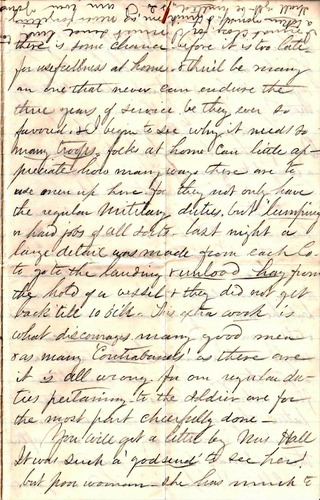 there is some chance before it is too late
for usefullness at home & there'll be many
an one that never can endure the
three years of service be they ever so
favored. I begin to see why it needs so
many troops, folks at home can little ap-
preciate how many ways there are to
use men up here for they not only have
the regular Military duties, but "lumping"
& hard jobs of all sorts - last night a
large detail was made from each Co.
to go to the landing & unload hay from
the hold of a vessel & they did not get
back till 10 Oclk. This extra work is
what discourages many good men
& as many "Contrabands" as there are
it is all wrong for our regular du-
ties pertaining to the soldier are for
the most part cheerfully done -
You will get a letter by Mrs Hall
It was such a "god send" to see her.
but poor woman - She has much